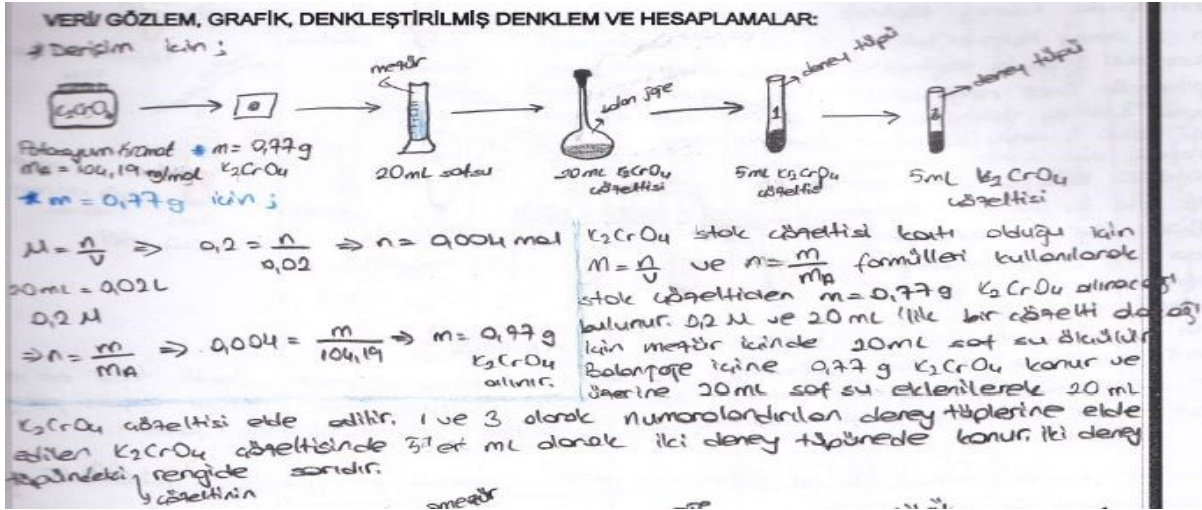 VERİ/ GÖZLEM, GRAFİK, DENKLEŞTİRİLMİŞ DENKLEM VE HESAPLAMALAR:
* Derişim için ;
mezür
balon joje
deney tüpü
deney tüpü
K2CrO4
1
Potasyum Kromat * m = 0,77g
20mL saf su
20mL K2CrO4
5mL K2CrO4
5mL K2CrO4
mA = 104,19 g/mol K2CrO4
çözeltisi
çözeltisi
çözeltisi
* m = 0,77g için ;
M = n/V ⇒ 0,2 = n/0,02 ⇒ n = 0,004 mol
20mL = 0,02L
0,2 M
⇒ n = m/mA ⇒ 0,004 = m/104,19 ⇒ m = 0,77 g
K2CrO4
alınır.
K2CrO4 stok çözeltisi katı olduğu için
M = n/V ve n = m/mA formülleri kullanılarak
stok çözeltiden m = 0,77g K2CrO4 alınacağı
bulunur. 0,2 M ve 20 mL 'lik bir çözelti olacağı
için mezür içinde 20mL saf su ölçülür
Balonjoje içine 0,77 g K2CrO4 konur ve
üzerine 20mL saf su eklenilerek 20 mL
K2CrO4 çözeltisi elde edilir. 1 ve 3 olarak numaralandırılan deney tüplerine elde
edilen K2CrO4 çözeltisinde 5'er mL olarak iki deney tüpünede konur. iki deney
tüpündeki rengide sarıdır.
çözeltinin
mezür